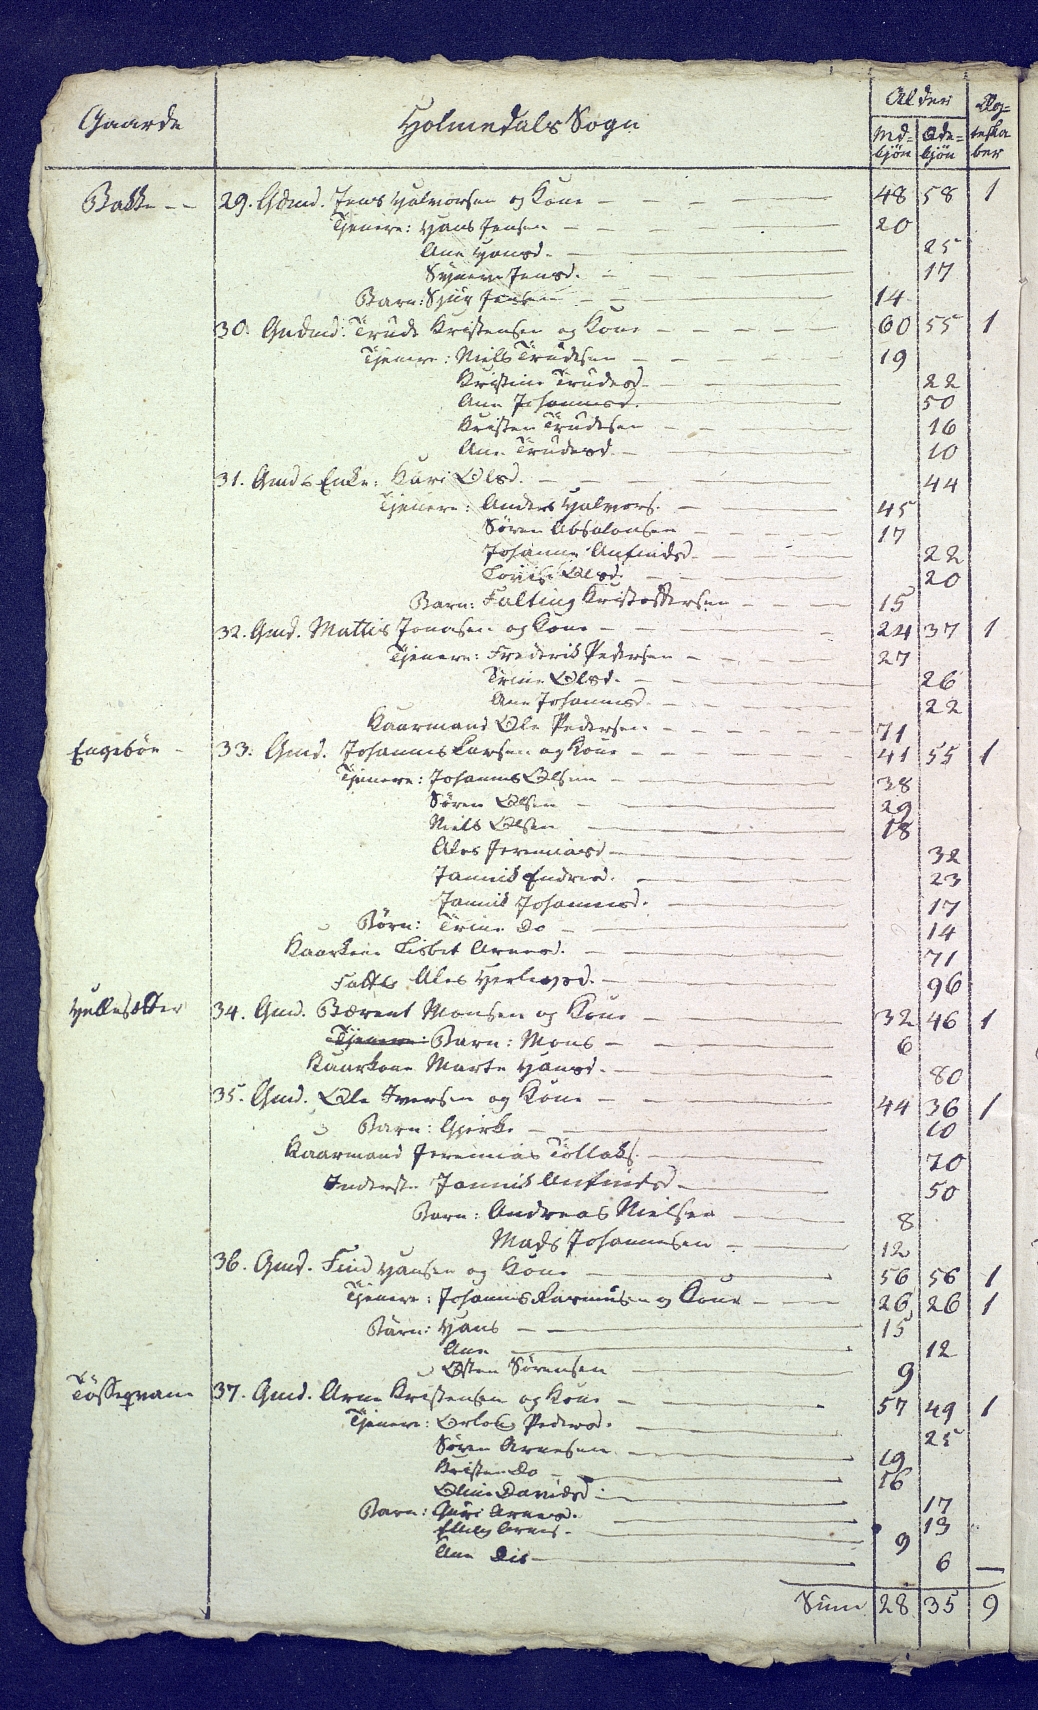 Gaarde Holmedals Sogn Alder Ægteskaber
Mdkjön Qdekjön
Bakke 29. Gdmd. Jens Halvorsen og Kone 48 58 1
Tjenere: Hans Jensen 20
Ane Hansd. 25
Synneve Jensd. 17
Barn: Sjur Jensen 14
30. Grdmd: Trude Kristensen og Kone 60 55 1
Tjenere: Niels Trudesen 19
Kristine Trudesd. 22
Ane Johannesd. 50
Kristen Trudesen 16
Ane Trudesd. 10
31. Gmds Enke: Kari Olsd. 44
Tjenere: Anders Halvors. 45
Sören Absalonsen 17
Johanne Anfindsd. 22
Lovise Olsd. 20
Barn: Falting Kristoffersen 15
32. Gmd. Mattis Jonasen og Kone 24 37 1
Tjenere: Frederik Pedersen 27
Trine Olsd. 26
Ane Johannesd. 22
Kaarmand Ole Pedersen 71
Engebøn 33. Gmd. Johannes Larsen og Kone 41 55 1
Tjenere: Johannes Olsen 38
Sören Olsen 29
Niels Olsen 18
Ales Jeremiasd. 32
Jannik Endresd. 23
Jannik Johannesd. 17
Börn: Trine Do 14
Kaarkone Lisbet Arnesd. 71
Fattig Ales 96
Hellesætter 34. Gmd. Bærent Monsen og Kone 32 46 1
Tjenere: Barn: Mons 6
Kaarkone Marte Hansd. 80
35. Gmd. Ole Iversen og Kone 44 36 1
Barn: Gjerke 10
Kaarmand Jeremias Tollaks. 70
Inderste Jannik Anfindsd. 50
Barn: Andreas Nielsen 8
Mads Johannesen 12
36. Gmd. Find Hansen og Kone 56 56 1
Tjenere: Johannes Rasmusen og Kone 26 26 1
Barn: Hans 15
Ane 12
Østen Sörensen 9
37. Gmd. Arne Kristensen og Kone 57 49 1
Tjenere: Pedersd. 25
Sören Arnesen 19
Kristen Do 16
Oline Davidsd. 17
Barn: Guri Arnesd. 13
Arnes. 9
Ane Dis 6
Sum 28 35 9